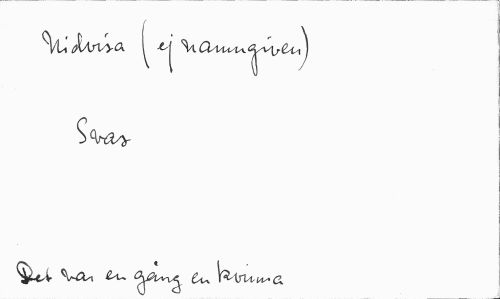 Nidvisa (ej namngiven)
Svar
Det var en gång en kvinna